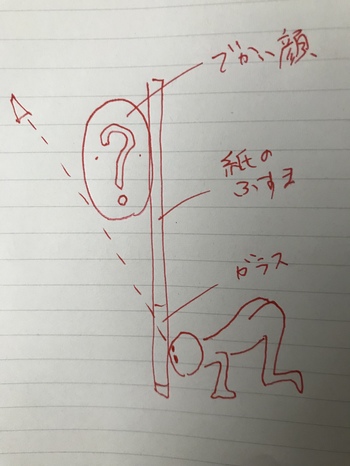 でかい顔
?
紙の
ふすま
ガラス